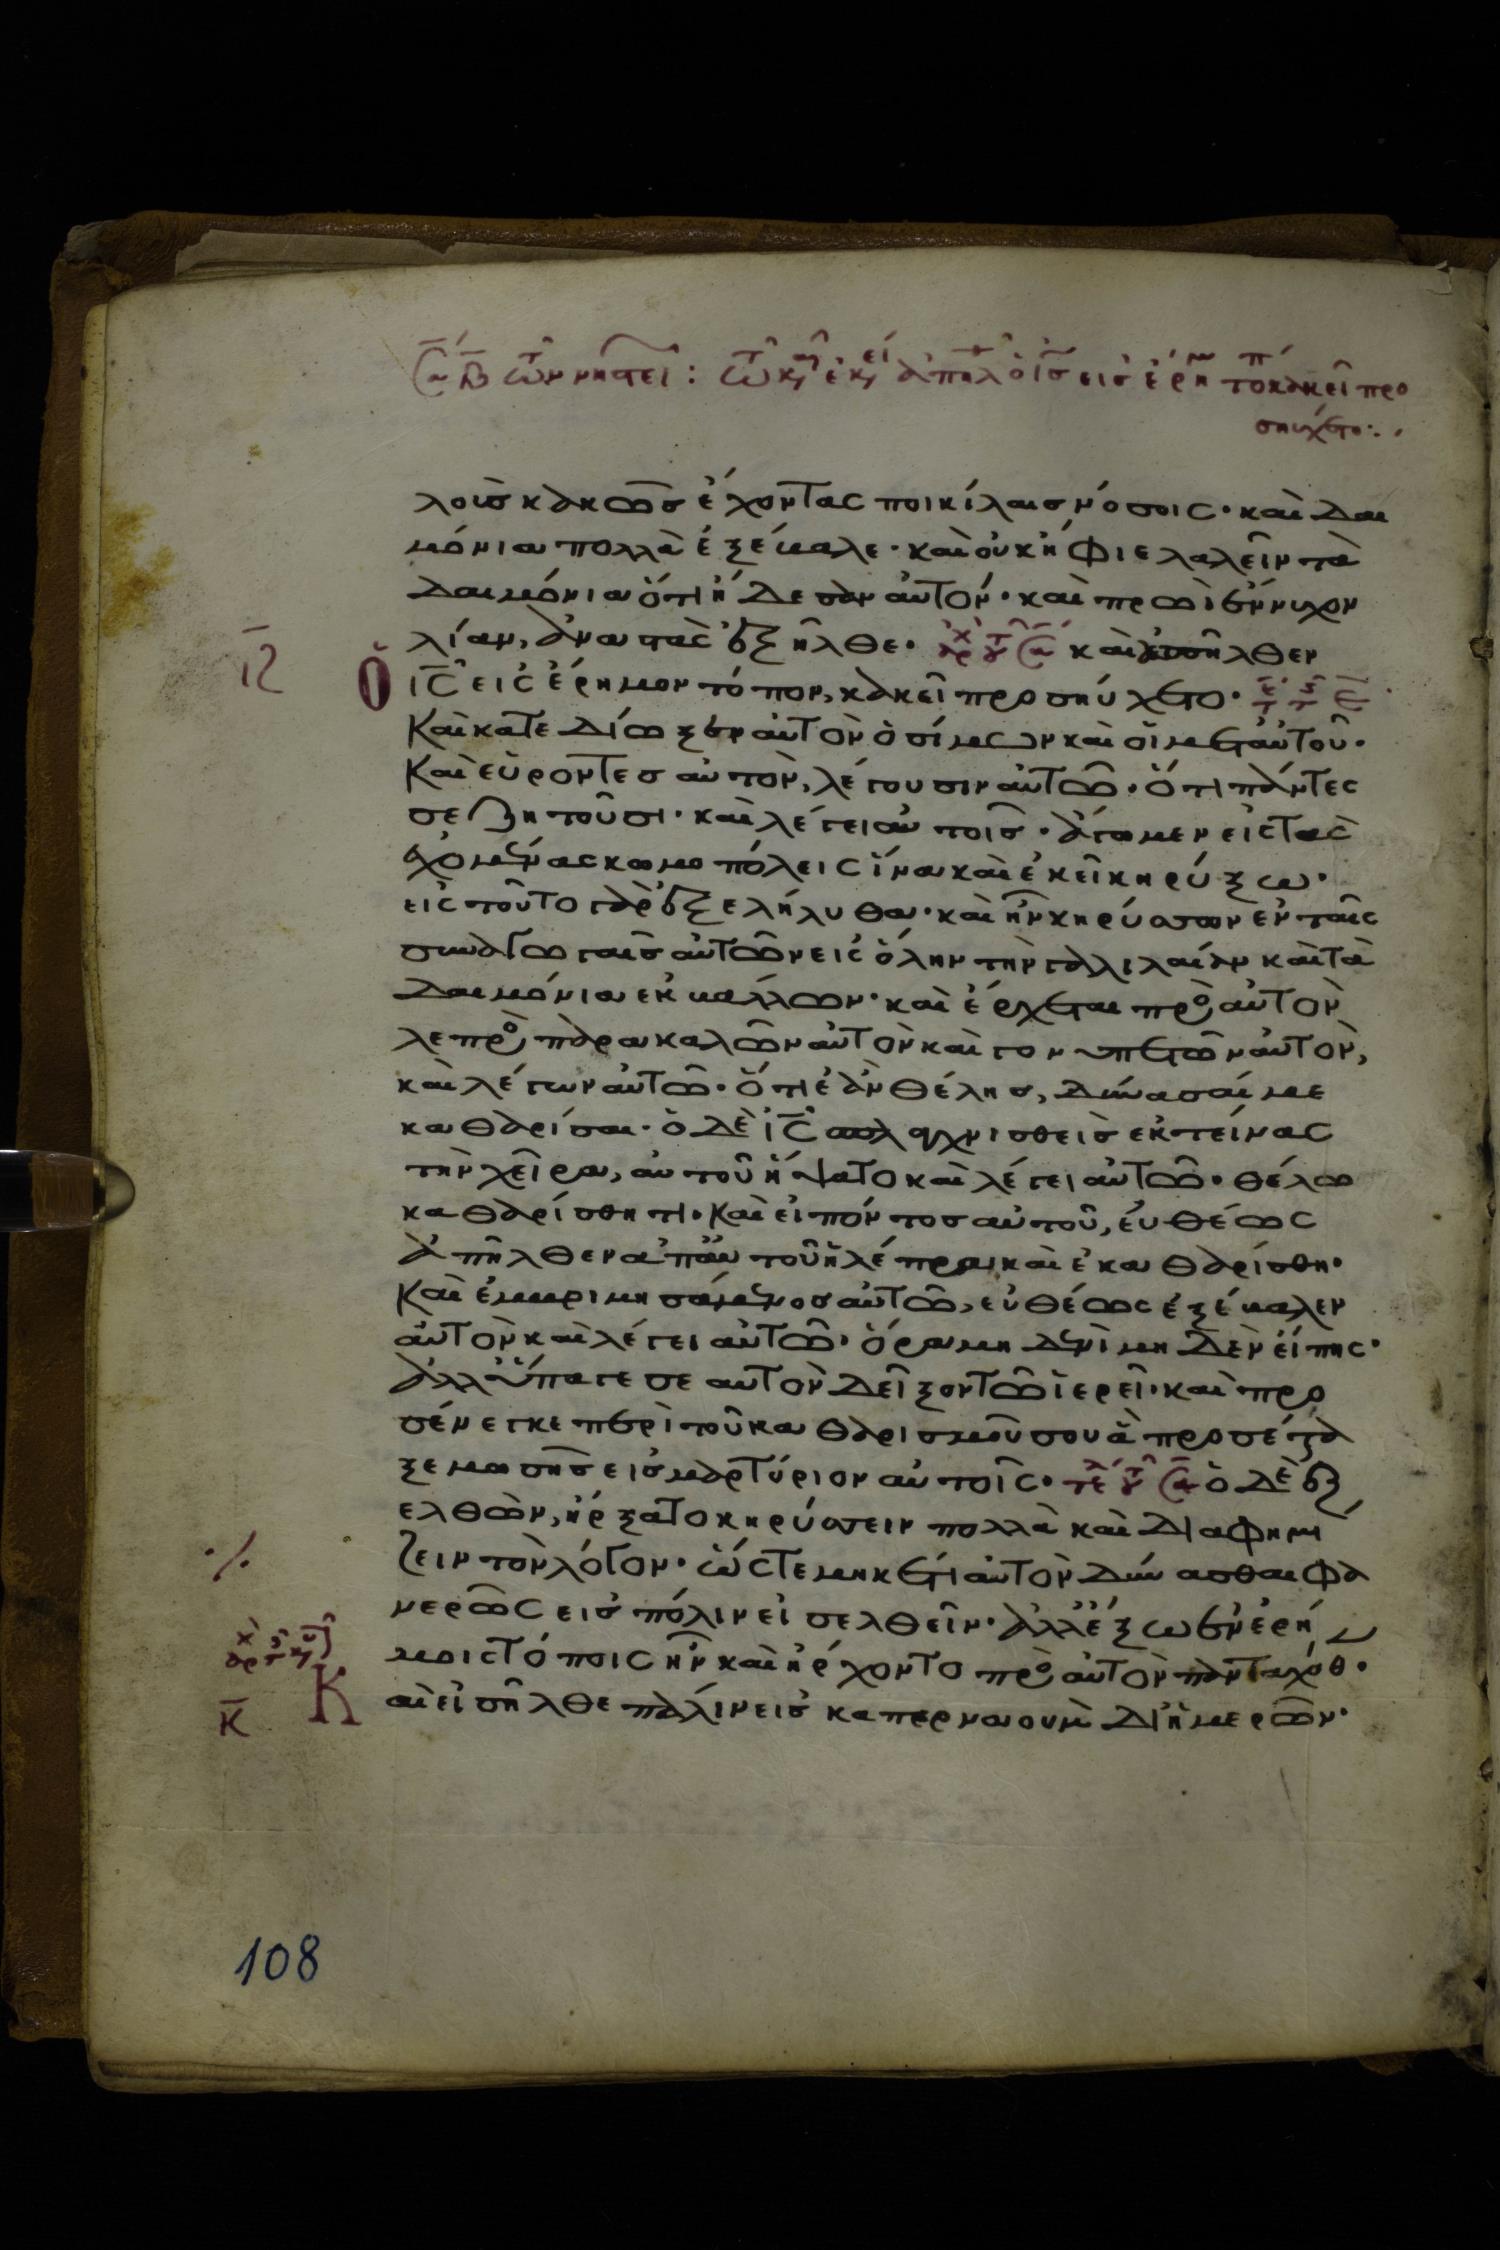 λοὺς κακῶς ἔχοντας ποικίλαις νόσοις· καὶ δαι
μόνια πολλὰ ἐξέβαλε· καὶ οὐκ ἤφιε λαλεῖν τὰ
δαιμόνια ὅτι ἤδεισαν αὐτόν· καὶ πρωῒ ἔννυχον
λίαν, ἀναστὰς ἐξῆλθε· καὶ ἀπῆλθεν
ις̅ εἰς ἔρημον τόπον, κἀκεῖ προσηύχετο·
Καὶ κατεδίωξεν αὐτὸν ὁ σίμων καὶ οἱ μετ αὐτοῦ·
Καὶ εὑρόντες αὐτὸν, λέγουσιν αὐτῶ· ὅτι πάντες
σε ζητοῦσι· καὶ λέγει αὐτοῖς· ἄγωμεν εἰς τὰς
ἐχομένας κωμοπόλεις ἵνα καὶ ἐκεῖ κηρύξω·
εἰς τοῦτο γὰρ ἐξελήλυθα· καὶ ἦν κηρύσσων ἐν ταῖς
συναγωγαῖς αὐτῶν εἰς ὅλην τὴν γαλιλαίαν καὶ τὰ
δαιμόνια ἐκβάλλων· καὶ ἔρχεται πρὸς αὐτὸν
λεπρὸς παρακαλῶν αὐτὸν καὶ γονυπετῶν αὐτὸν,
καὶ λέγων αὐτῶ· ὅτι ἐὰν θέλης, δύνασαί με
καθαρίσαι· ὁ δὲ ις̅ σπλαγχνισθεὶς ἐκτείνας
τὴν χεῖρα, αὐτοῦ ἥψατο καὶ λέγει αὐτῶ· θέλω
καθαρίσθητι· Καὶ εἰπόντος αὐτοῦ, εὐθέως
ἀπῆλθεν ἀπ αὐτοῦ ἡ λέπρα, καὶ ἐκαθαρίσθη·
Καὶ ἐμβριμησάμενος αὐτῶ, εὐθέως ἐξέβαλεν
αὐτὸν καὶ λέγει αὐτῶ· ὅρα μηδενὶ μηδὲν εἴπης·
ἀλλ ὕπαγε σεαυτὸν δεῖξον τῶ ἱερεῖ· καὶ προ
σένεγκε περὶ τοῦ καθαρισμοῦ σου ἃ προσέτα
ξε μωσῆς εἰς μαρτύριον αὐτοῖς· ὁ δὲ ἐξ
ελθὼν, ἤρξατο κηρύσσειν πολλὰ καὶ διαφημί
ζειν τὸν λόγον· ὥστε μηκέτι αὐτὸν δύνασθαι φα
νερῶς εἰς πόλιν εἰσελθεῖν· ἀλλ ἔξω ἐν ἐρή
μοις τόποις ἦν καὶ ἤρχοντο πρὸς αὐτὸν πανταχόθ·
Κ αὶ εἰσῆλθε πάλιν εἰς καπερναοὺμ δι ἡμερῶν·
κ̅
108